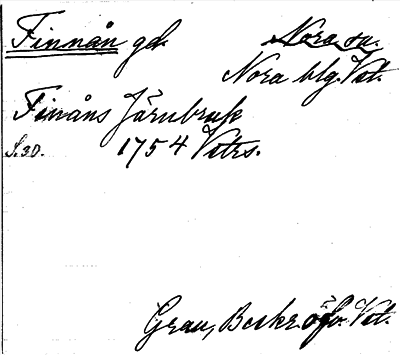 Finnån gd. Nora sn.
Nora blg. Vst.
Finåns Järnbruk
S. 30. 1754 Vstrs.
Grau, Beskr. öfv. Vst.